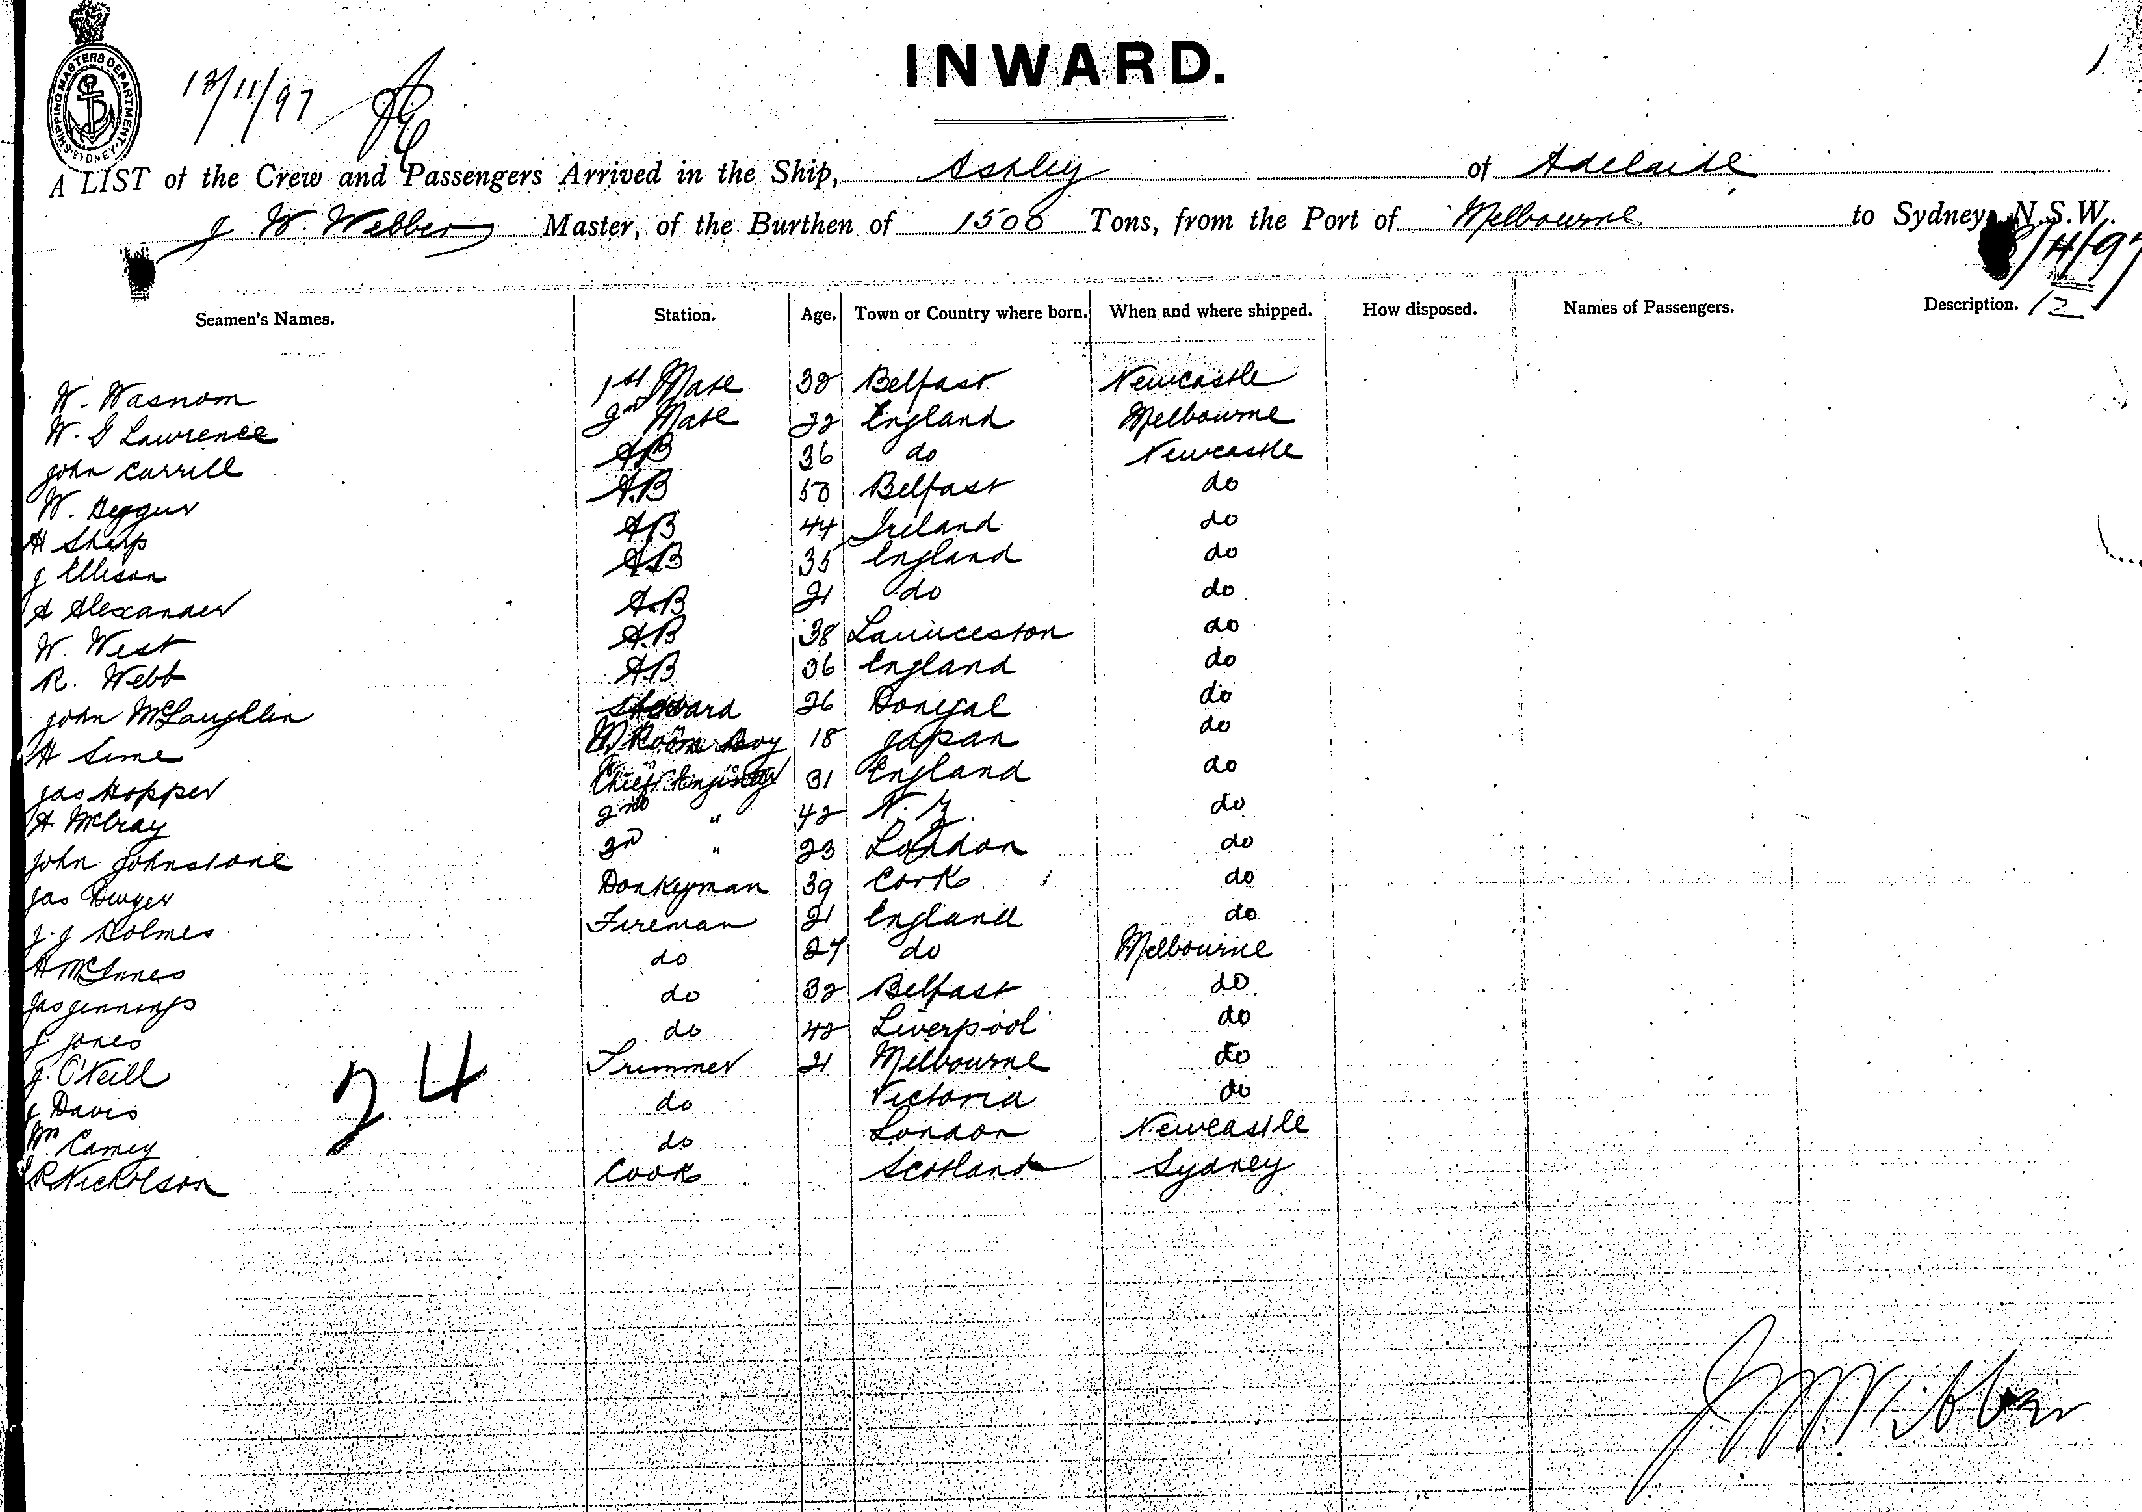 INWARD.
SHIPPING MASTERS DEPARTMENT SYDNEY
13/11/97
A LIST of the Crew and Passengers Arrived in the Ship, Ashley of Adelaide
J W. Webber Master, of the Burthen of 1508 Tons, from the Port of Melbourne to Sydney, N.S.W.
/11/97
12
Seamen's Names. Station. Age. Town or Country where born. When and where shipped. How disposed. Names of Passengers. Description.
W. Wasnom 1st Mate 38 Belfast Newcastle
W. G Lawrence 2n Mate 22 England Melbourne
John Carrill AB 36 do Newcastle
W. Beggur A.B 50 Belfast do
H Sharp AB 44 Ireland do
J Ellison A.B 35 England do
A Alexander A.B 21 do do
W. West A.B 38 Launceston do
R. Webb A.B 36 England do
John McLaughlin Steward 26 Donegal do
H Sime M Room Boy 18 Japan do
Jas Hopper Chief Engineer 31 England do
A McCray 2nd " 42 N.Z. do
John Johnstone 3rd " 23 London do
Jas Dwyer Donkeyman 39 Cork do
J. J Holmes Fireman 21 England do
A McInnes do 27 do Melbourne
Jas Jennings do 32 Belfast do
J. Jones do 42 Liverpool do
J. O'Neill Trimmer 21 Melbourne do
J Davis do Victoria do
Wm Carney do London Newcastle
R Nicholson Cook Scotland Sydney
24
J W Webber